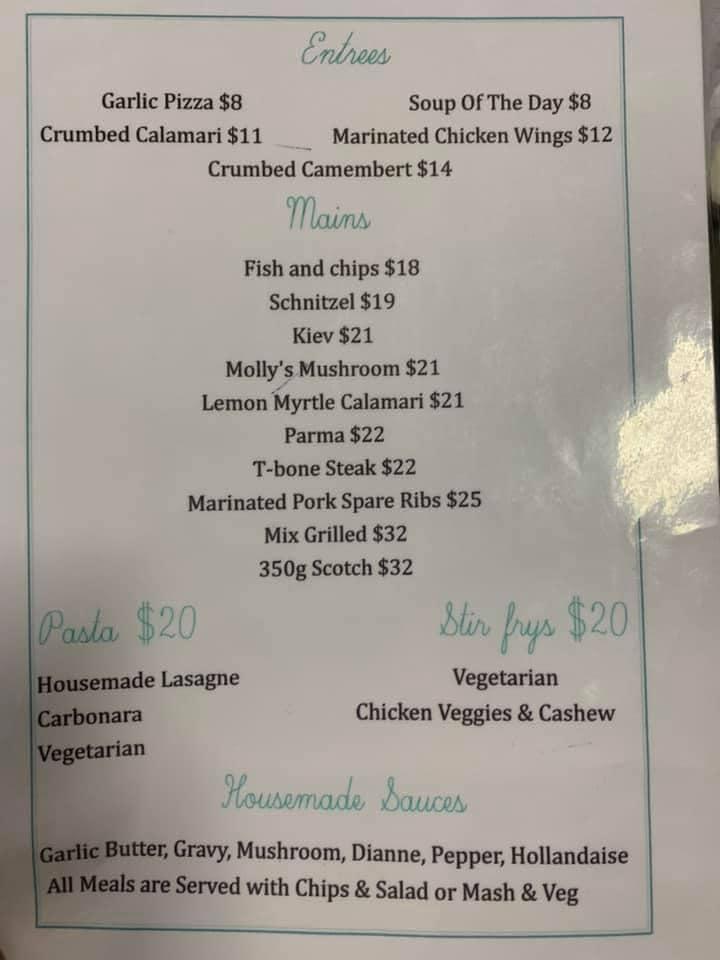 Entrees
Garlic Pizza $8
Soup Of The Day $8
Crumbed Calamari $11
Marinated Chicken Wings $12
Crumbed Camembert $14
Mains
Fish and chips $18
Schnitzel $19
Kiev $21
Molly's Mushroom $21
Lemon Myrtle Calamari $21
Parma $22
T-bone Steak $22
Marinated Pork Spare Ribs $25
Mix Grilled $32
350g Scotch $32
Pasta $20
Housemade Lasagne
Carbonara
Vegetarian
Stir frys $20
Vegetarian
Chicken Veggies & Cashew
Housemade Sauces
Garlic Butter, Gravy, Mushroom, Dianne, Pepper, Hollandaise
All Meals are Served with Chips & Salad or Mash & Veg